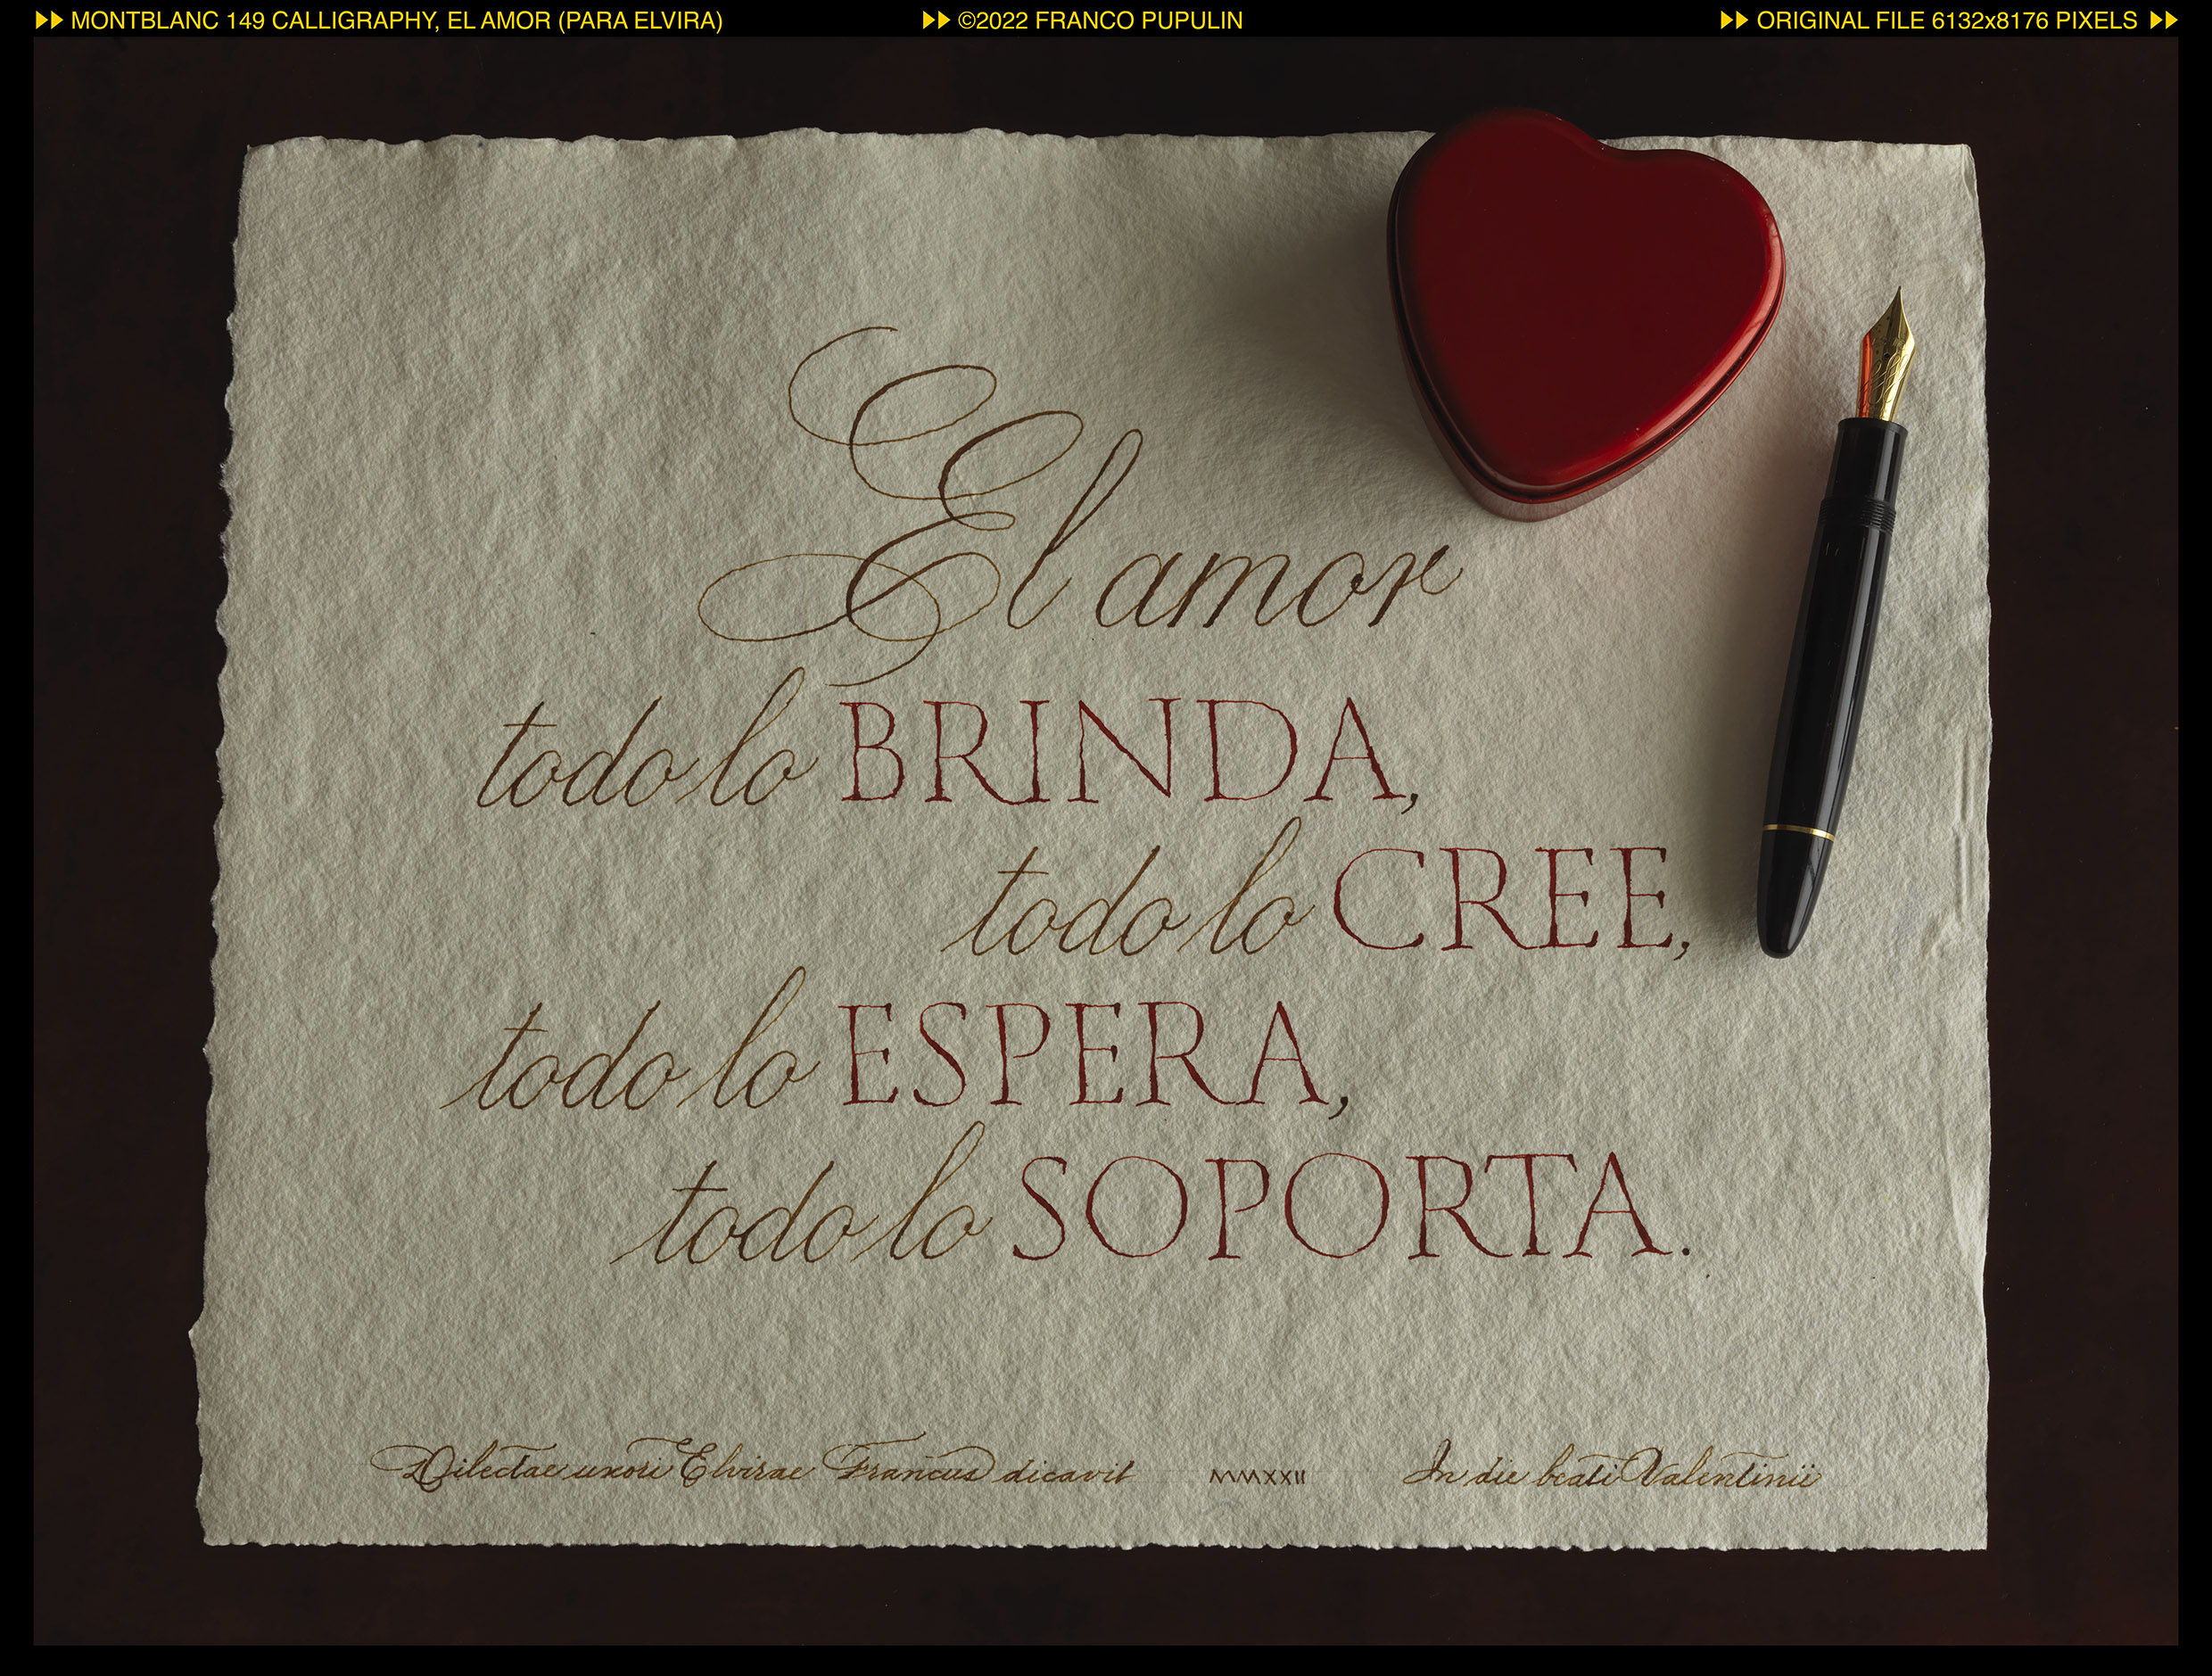 MONTBLANC 149 CALLIGRAPHY, EL AMOR (PARA ELVIRA) ©2022 FRANCO PUPULIN ORIGINAL FILE 6132x8176 PIXELS
El amor
todo lo BRINDA,
todo lo CREE,
todo lo ESPERA,
todo lo SOPORTA.
Dilectae uxori Elvirae Francus dicavit MMXXII In die beati Valentinii